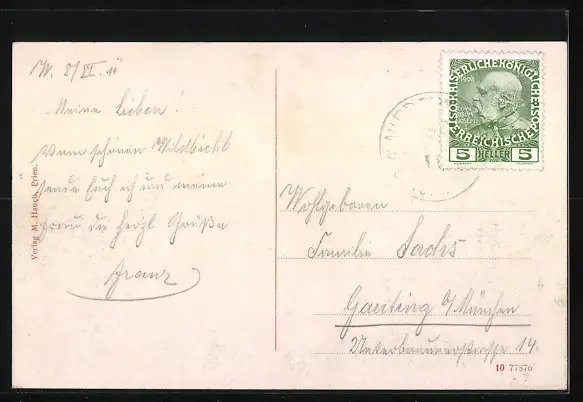 W. 8/VI. 11
Meine Lieben!
Vom schönen Wildbichl
sende Euch ich und meine
Frau die herzl. Grüße
Franz
Verlag M. Hauch, Prien.
KAISERLICHE KÖNIGLICHE
ÖSTERREICHISCHE
1908
5 HELLER 5
Wohlgeboren
Familie Sachs
Gauting b/München
Unterbrunnerstrasse 14.
10 7787